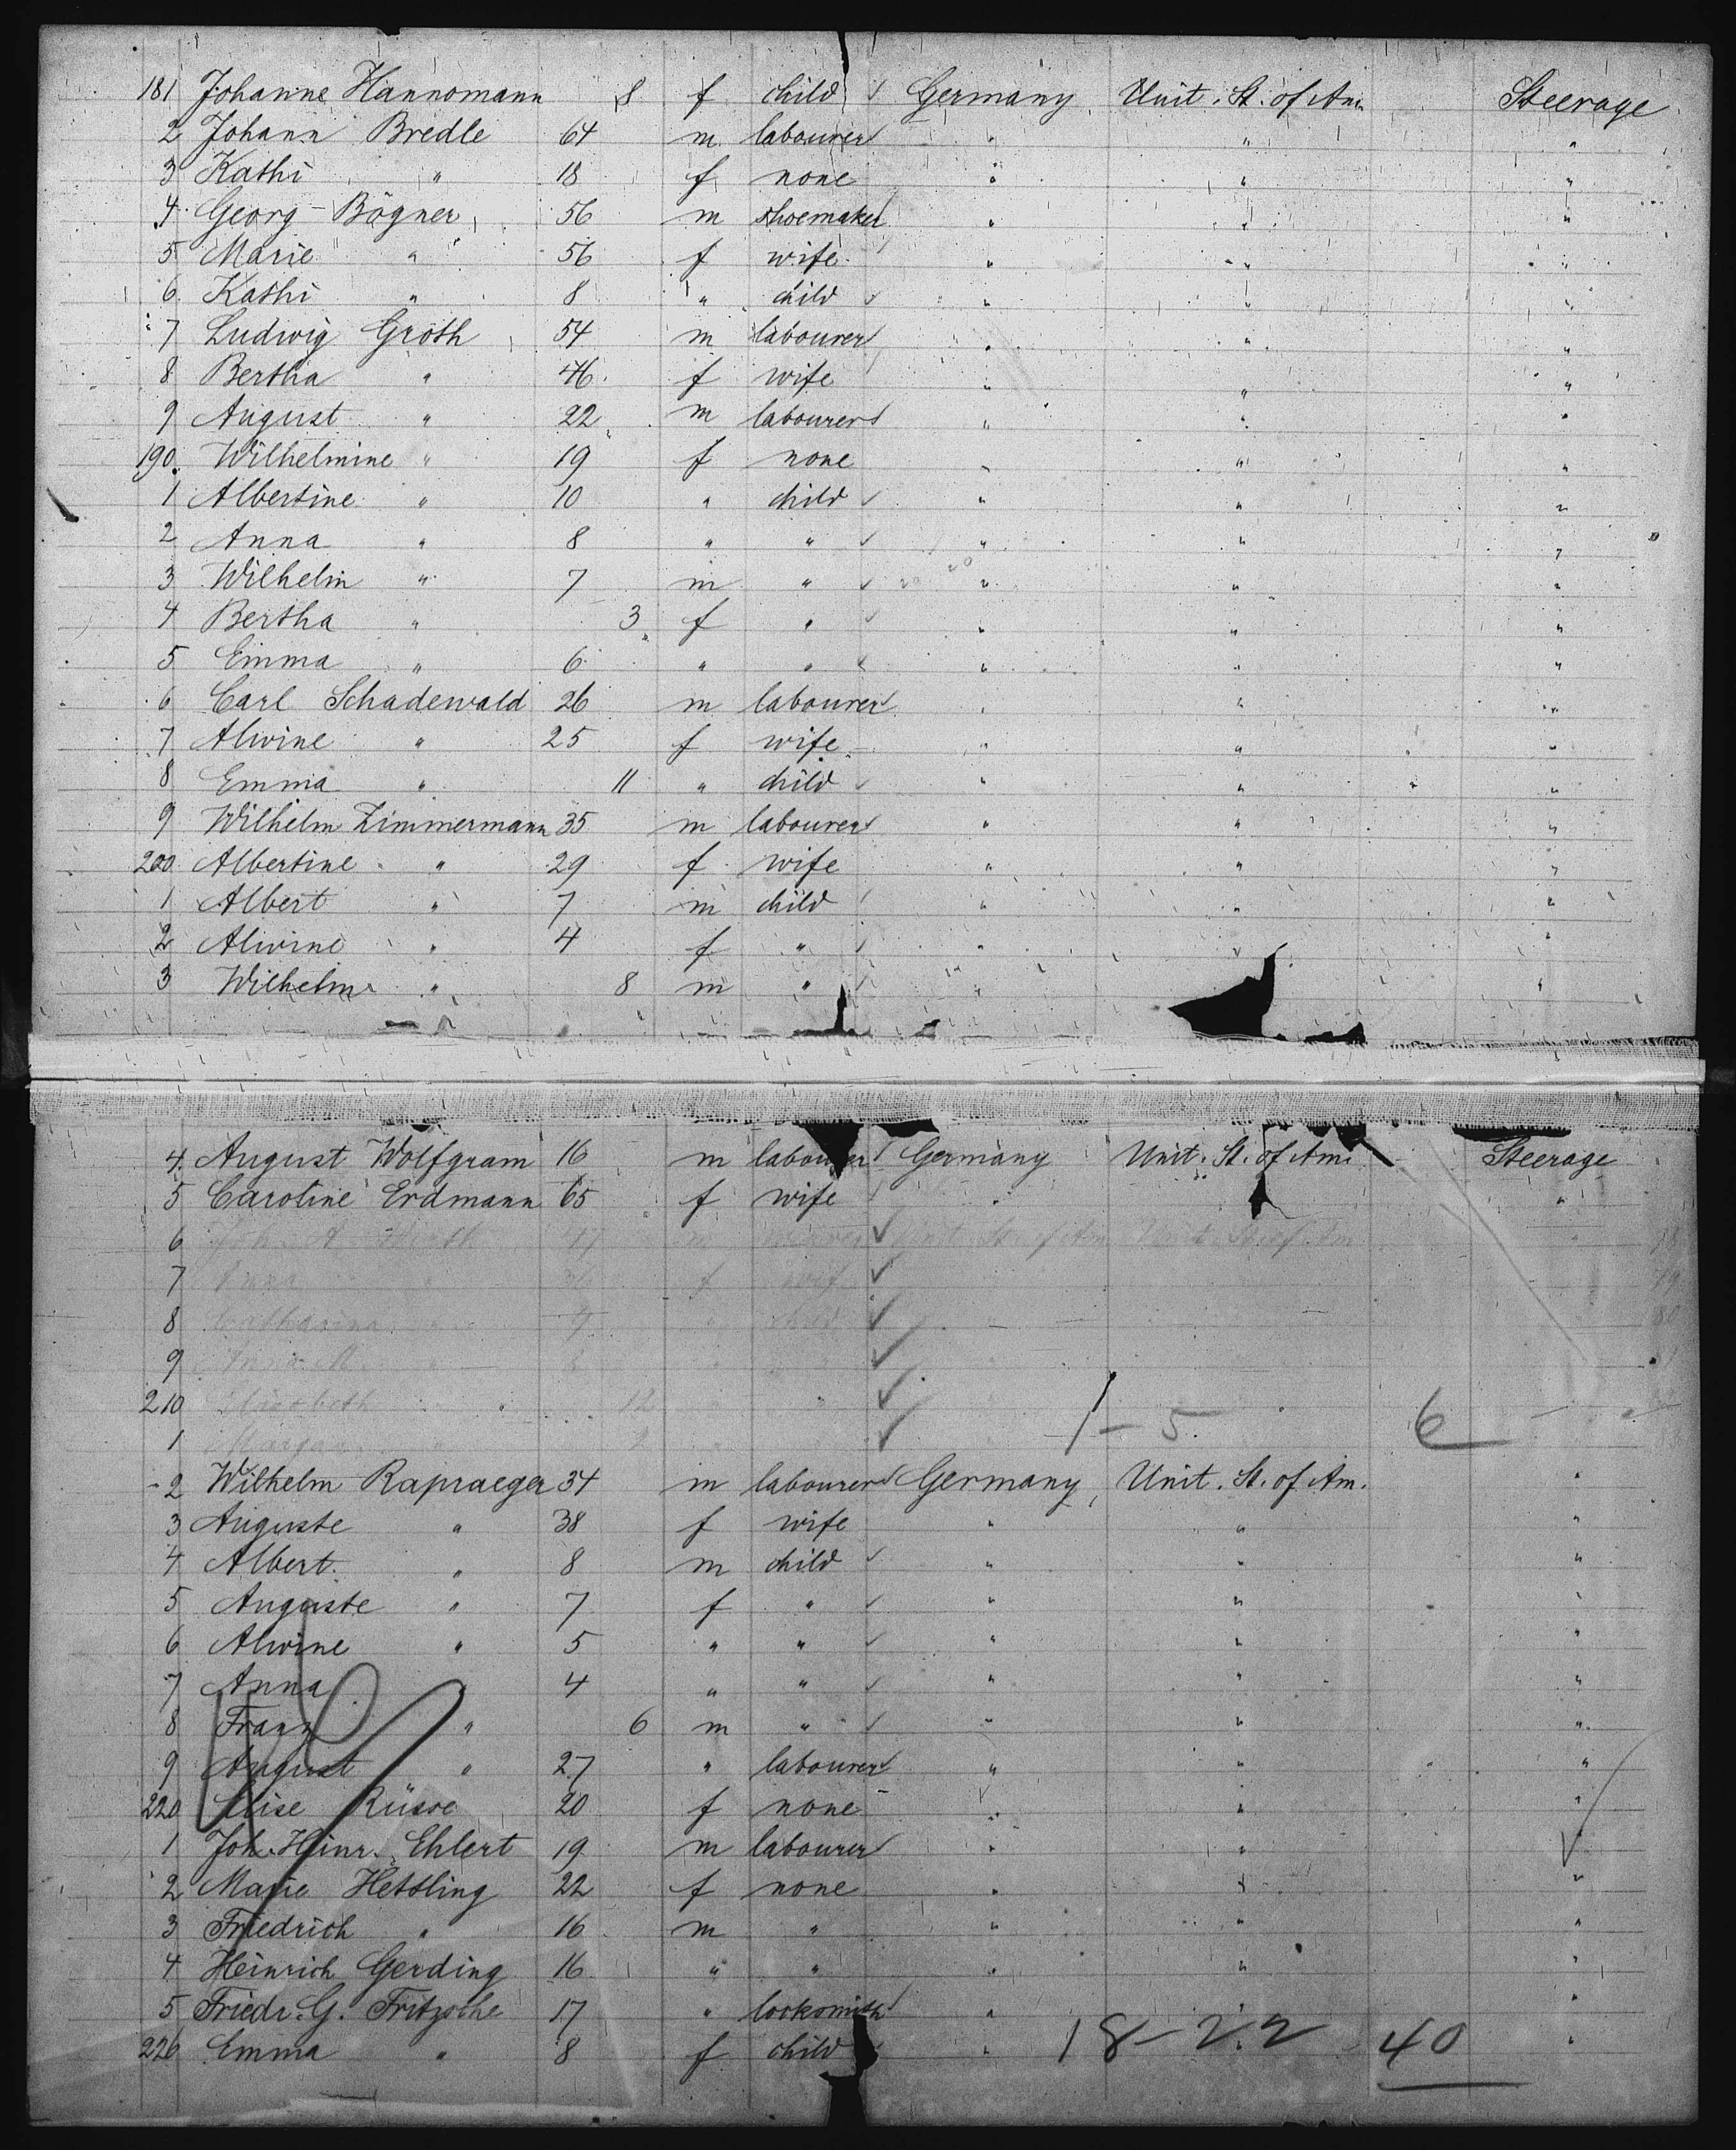 181 Johanne Hannomann 8 f child Germany Unit. St. of Am. Steerage
2 Johann Bredle 64 m labourer " " "
3 Kathi " 18 f none " " "
4 Georg Bögner 56 m shoemaker " " "
5 Marie " 56 f wife " " "
6 Kathi " 8 " child " " "
7 Ludwig Groth 54 m labourer " " "
8 Bertha " 46 f wife " " "
9 August " 22 m labourer " " "
190 Wilhelmine " 19 f none " " "
1 Albertine " 10 " child " " "
2 Anna " 8 " " " " "
3 Wilhelm " 7 m " " " "
4 Bertha " 3 f " " " "
5 Emma " 6 " " " " "
6 Carl Schadewald 26 m labourer " " "
7 Alwine " 25 f wife " " "
8 Emma " 11 " child " " "
9 Wilhelm Zimmermann 35 m labourer " " "
200 Albertine " 29 f wife " " "
1 Albert " 7 m child " " "
2 Alwine " 4 f " " " "
3 Wilhelm " 8 m " " "
4 August Wolfgram 16 m labourer Germany Unit. St. of Am. Steerage
5 Caroline Erdmann 65 f wife " "
6 m Unit. St. of Am Unit. St. of Am
7 Anna f wife
8 Catharina " 9 " child
9 Anna M. "
210 Elisabeth " 12 "
1 1 - 5 6
2 Wilhelm Rapraeger 34 m labourer Germany Unit. St. of Am. "
3 Auguste " 38 f wife " " "
4 Albert " 8 m child " " "
5 Auguste " 7 f " " " "
6 Alwine " 5 " " " " "
7 Anna 4 " " " " "
8 Franz " 6 m " " " "
9 August " 27 " labourer " " "
220 Elise 20 f none " " "
1 Joh. Hinr. Ehlert 19 m labourer " " "
2 Marie Hettling 22 f none " " "
3 Friedrich " 16 m " " " "
4 Heinrich Gerding 16 " " " " "
5 Friedr. G. Fritzsche 17 " locksmith " " "
226 Emma " 8 f child " 18-22 40 "